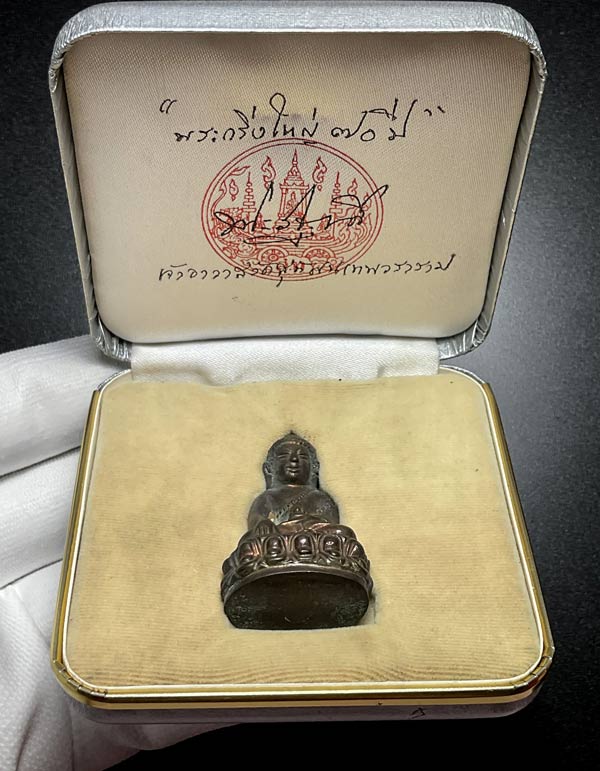 "พระกริ่งใหญ่ ๗๐ ปี"
เจ้าอาวาสวัดสุทัศนเทพวราราม